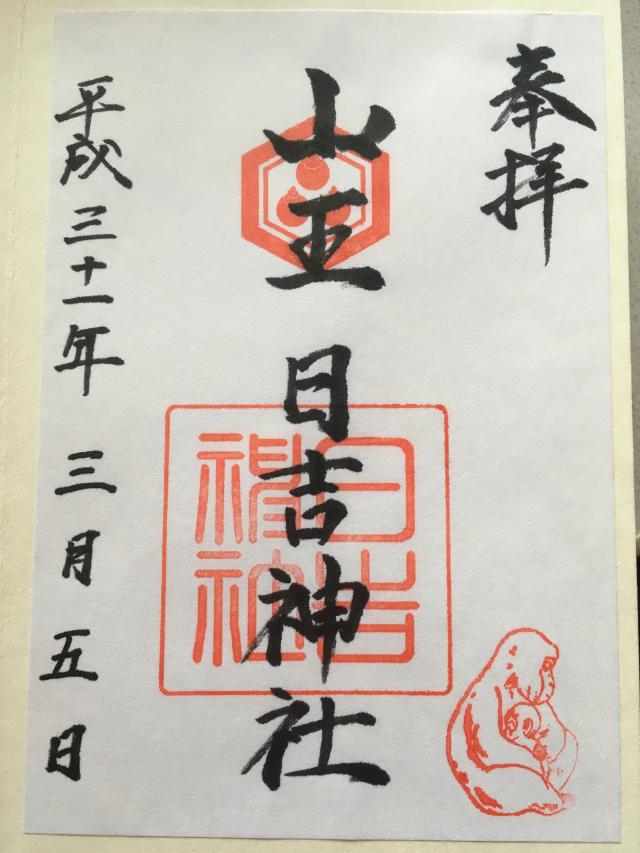 奉拝
山王 日吉神社
日吉神社
平成三十一年 三月五日